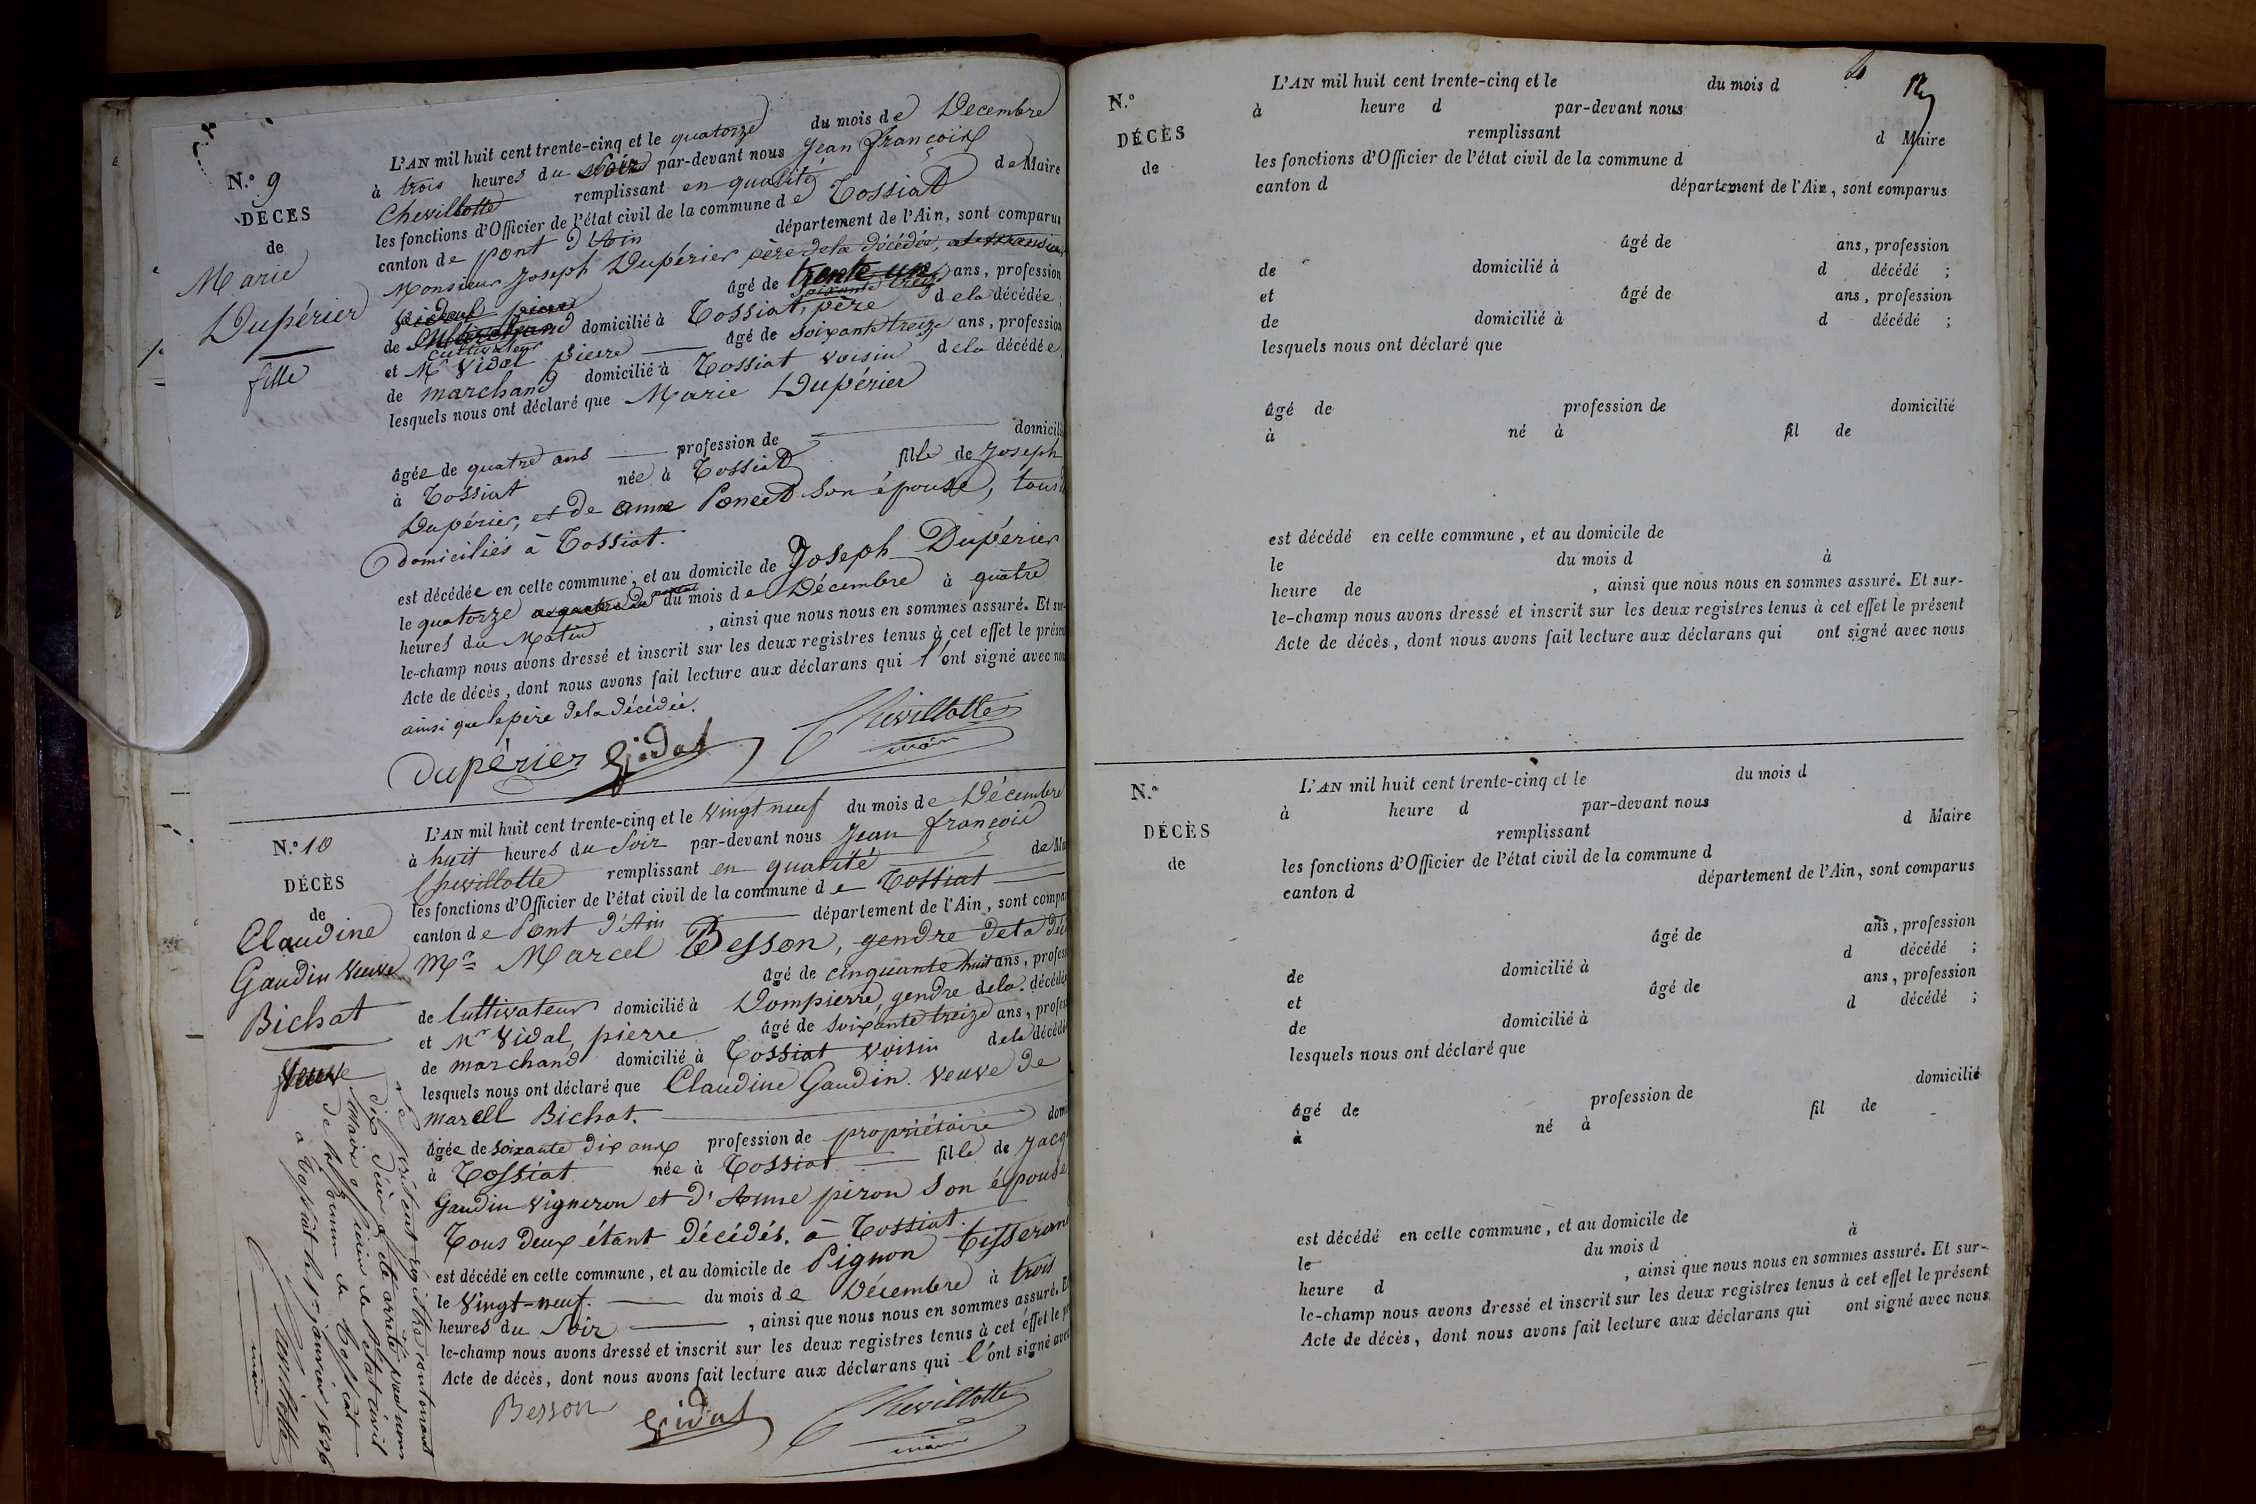 N.° 9
DÉCÈS
de
Marie
Dupérier
fille
L'AN mil huit cent trente-cinq et le quatorze du mois de Décembre
à trois heures du soir par-devant nous Jean françois
Chevillotte remplissant en qualité de Maire
les fonctions d'Officier de l'état civil de la commune de Tossiat
canton de pont d'Ain département de l'Ain, sont comparus
Monsieur Joseph Dupérier père de la décédée,
âgé de trente un ans, profession
soixante treize
de Marchand domicilié à Tossiat, père de la décédée ;
cultivateur
et Mr Vidal pierre âgé de soixante treize ans, profession
de marchand domicilié à Tossiat voisin de la décédée
lesquels nous ont déclaré que Marie Dupérier
âgée de quatre ans profession de domicilié
à Tossiat née à Tossiat fille de Joseph
Dupérier, et de anne Poncet son épouse, tous
domiciliés à Tossiat.
est décédée en cette commune, et au domicile de Joseph Dupérier
le quatorze du mois de Décembre à quatre
heures du Matin , ainsi que nous nous en sommes assuré. Et sur-
le-champ nous avons dressé et inscrit sur les deux registres tenus à cet effet le présent
Acte de décès, dont nous avons fait lecture aux déclarans qui l'ont signé avec nous
ainsi que le père de la décédée.
dupérier Vidal Chevillotte
maire
N.° 10
DÉCÈS
de
Claudine
Gaudin Veuve
Bichat
L'AN mil huit cent trente-cinq et le Vingt neuf du mois de Décembre
à huit heures du Soir par-devant nous Jean françois
Chevillotte remplissant en qualité de Maire
les fonctions d'Officier de l'état civil de la commune de Tossiat
canton de Pont d'Ain département de l'Ain, sont comparus
Mr Marcel Besson, gendre de la
âgé de cinquante huit ans, profession
de Cultivateur domicilié à Dompierre, gendre de la décédée
et Mr Vidal, pierre âgé de soixante treize ans, profession
de marchand domicilié à Tossiat voisin de la décédée
lesquels nous ont déclaré que Claudine Gaudin Veuve de
marcel Bichat.
âgée de soixante dix ans profession de propriétaire
à Tossiat née à Tossiat fille de Jacques
Gaudin Vigneron et d'Anne piron son épouse
Tous deux étant décédés. à Tossiat.
est décédé en cette commune, et au domicile de Pignon Tisserand
le Vingt-neuf. du mois de Décembre à trois
heures du Soir , ainsi que nous nous en sommes assuré. Et
le-champ nous avons dressé et inscrit sur les deux registres tenus à cet effet le
Acte de décès, dont nous avons fait lecture aux déclarans qui l'ont signé avec
Besson Vidal Chevillotte
maire
Le présent régistre contenant
dix a été arrêté par nous
maire officier de l'état civil
de la commune de Tossiat
à Tossiat le 1er janvier 1836
Chevillotte
maire
N.°
DÉCÈS
de
L'AN mil huit cent trente-cinq et le du mois d
à heure d par-devant nous
remplissant d Maire
les fonctions d'Officier de l'état civil de la commune d
canton d département de l'Ain, sont comparus
âgé de ans, profession
de domicilié à d décédé ;
et âgé de ans, profession
de domicilié à d décédé ;
lesquels nous ont déclaré que
âgé de profession de domicilié
à né à fil de
est décédé en cette commune, et au domicile de
le du mois d à
heure de , ainsi que nous nous en sommes assuré. Et sur-
le-champ nous avons dressé et inscrit sur les deux registres tenus à cet effet le présent
Acte de décès, dont nous avons fait lecture aux déclarans qui ont signé avec nous
N.°
DÉCÈS
de
L'AN mil huit cent trente-cinq et le du mois d
à heure d par-devant nous
remplissant d Maire
les fonctions d'Officier de l'état civil de la commune d
canton d département de l'Ain, sont comparus
âgé de ans, profession
de domicilié à d décédé ;
et âgé de ans, profession
de domicilié à d décédé ;
lesquels nous ont déclaré que
âgé de profession de domicilié
à né à fil de
est décédé en cette commune, et au domicile de
le du mois d à
heure d , ainsi que nous nous en sommes assuré. Et sur-
le-champ nous avons dressé et inscrit sur les deux registres tenus à cet effet le présent
Acte de décès, dont nous avons fait lecture aux déclarans qui ont signé avec nous